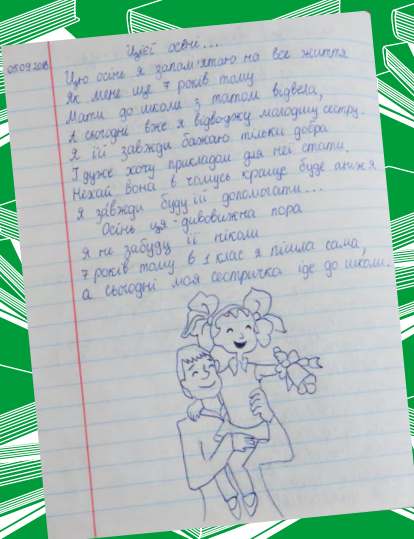 05.09.2018
Цієї осені...
Цю осінь я запам'ятаю на все життя
Як мене ще 7 років тому
Мати до школи з татом відвела,
А сьогодні вже я відводжу молодшу сестру.
Я їй завжди бажаю тільки добра
І дуже хочу прикладом для неї стати,
Нехай вона в чомусь краще буде аніж я
Я завжди буду їй допомогати...
Осінь ця - дивовижна пора
Я не забуду її ніколи
7 років тому в 1 клас я пішла сама,
а сьогодні моя сестричка іде до школи.